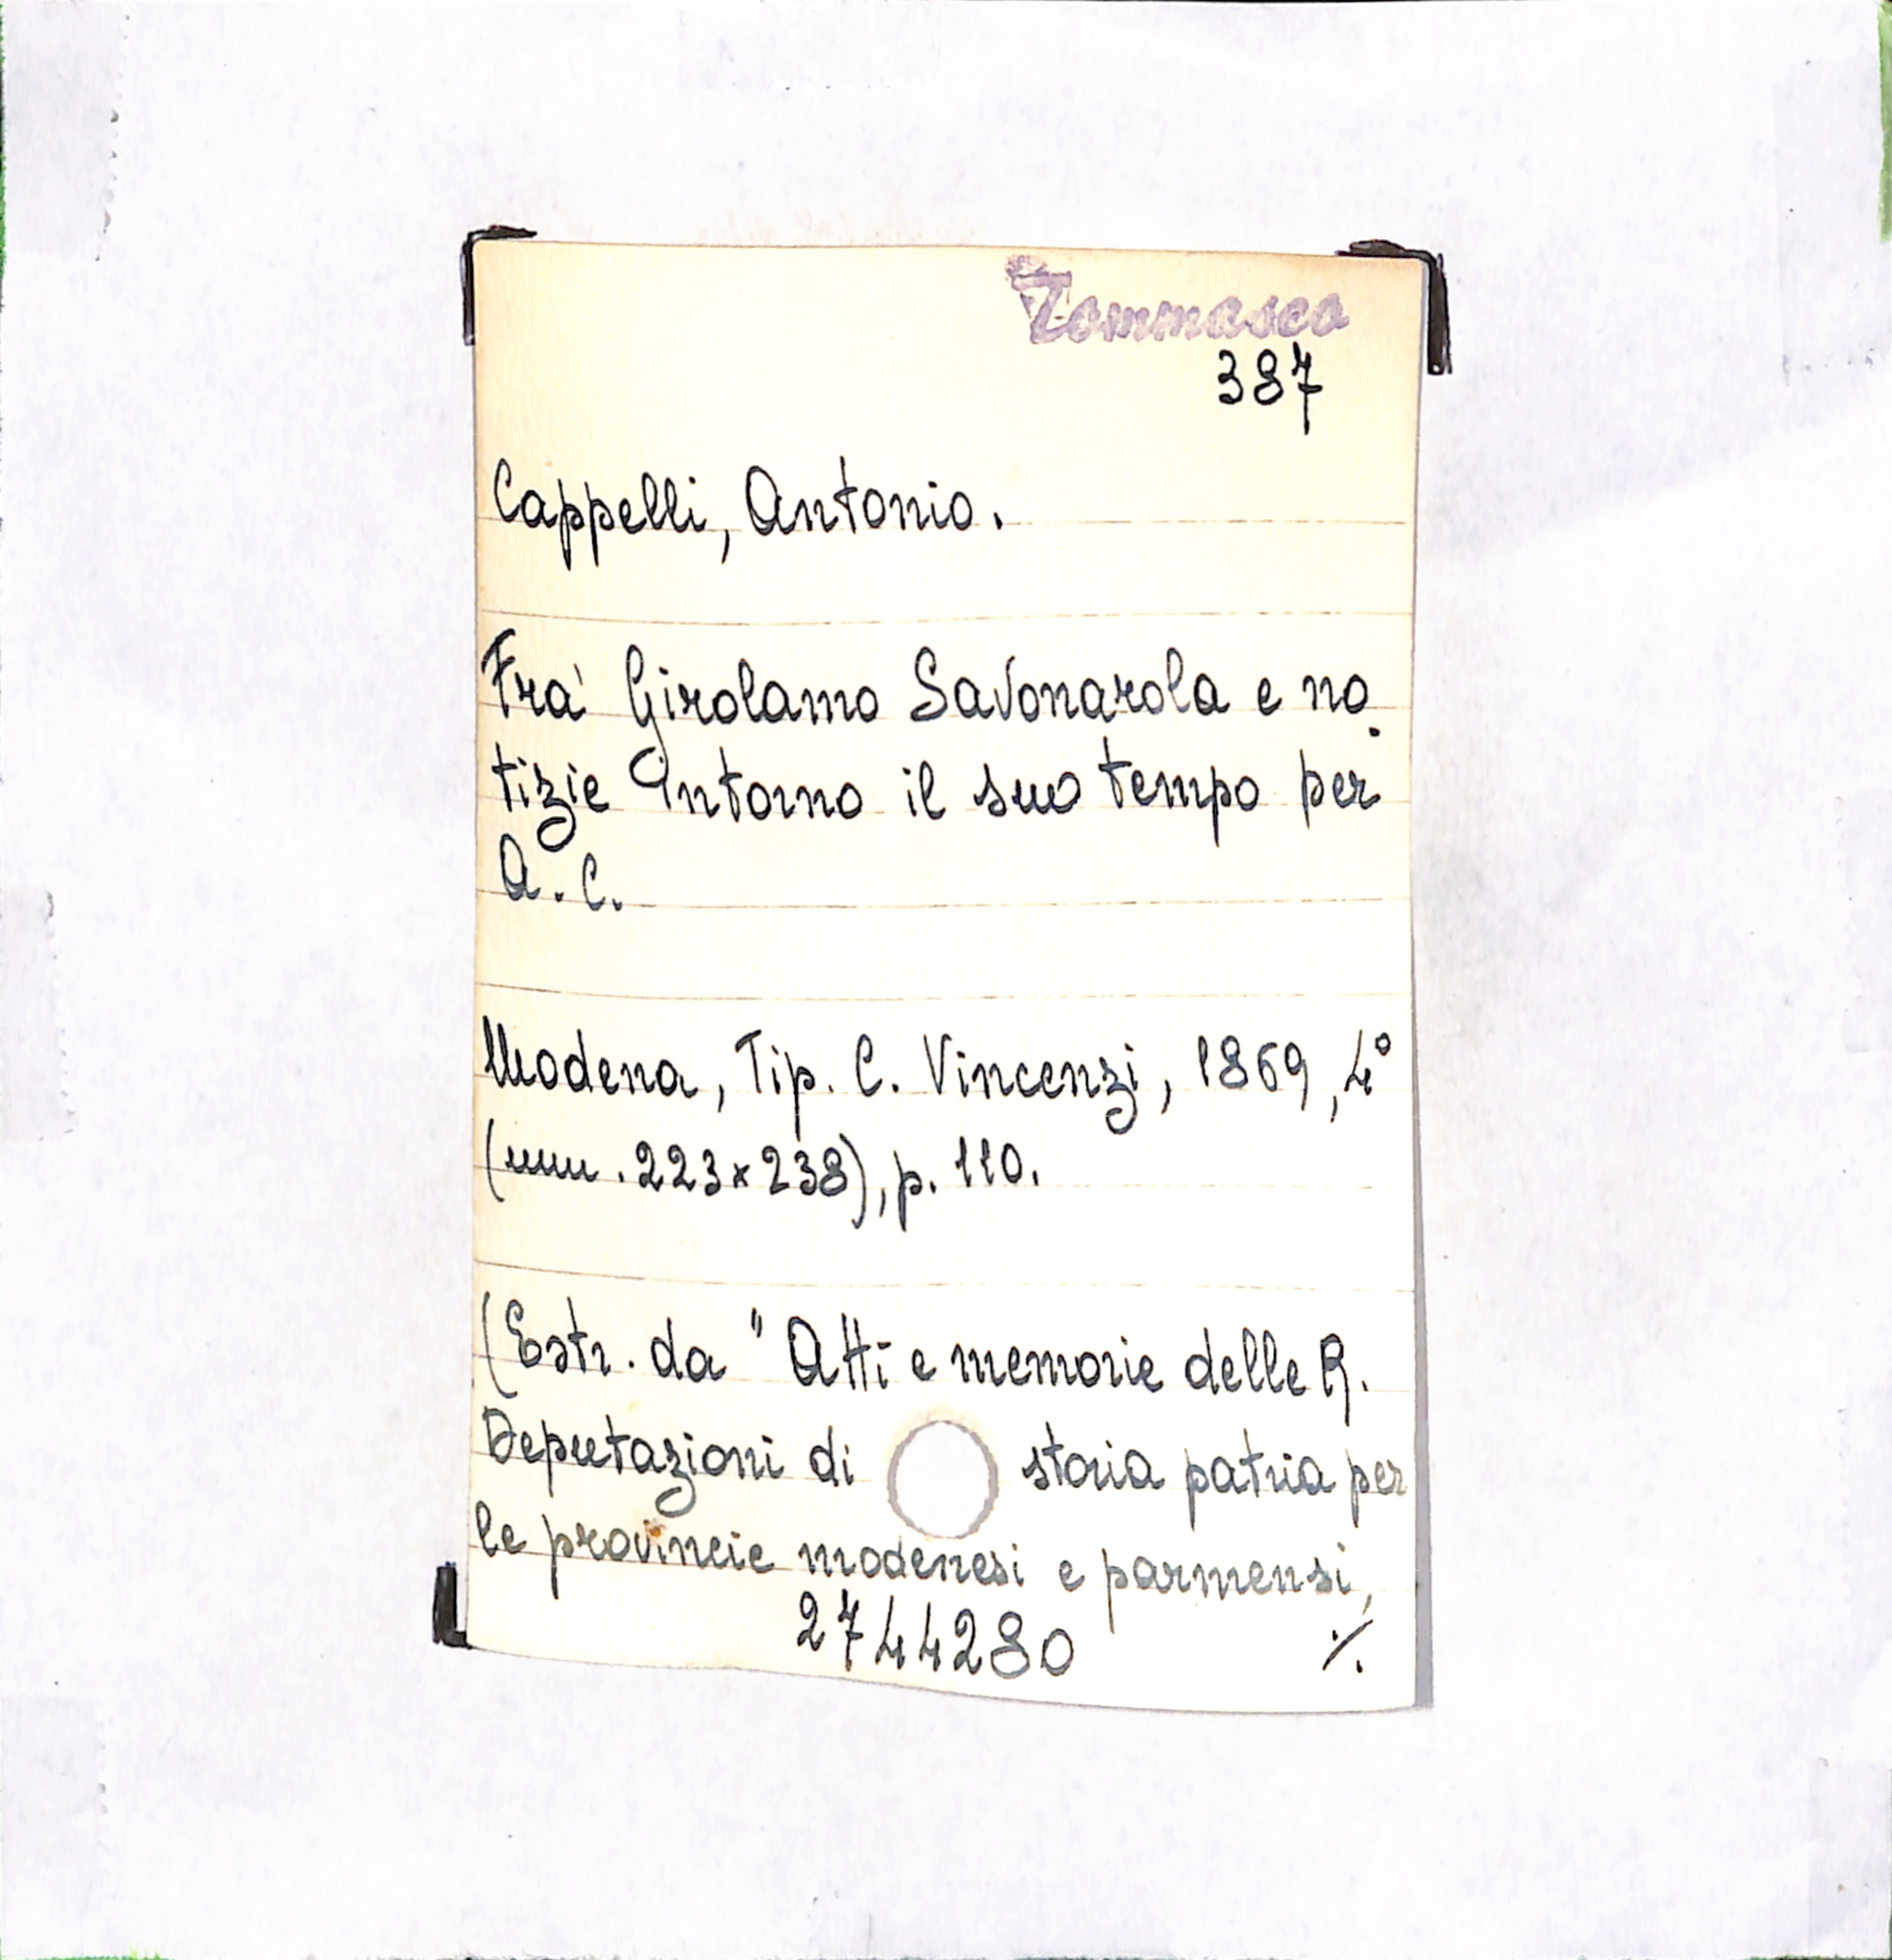 Tommaseo
387
Cappelli, Antonio.
Fra' Girolamo Savonarola e no
tizie Intorno il suo tempo per
A. C.
Modena, Tip. C. Vincenzi, 1869, 4°
(mm. 223x238), p. 110.
(Estr. da "Atti e memorie delle R.
Deputazioni di storia patria per
le provincie modenesi e parmensi,
2744280 ./.